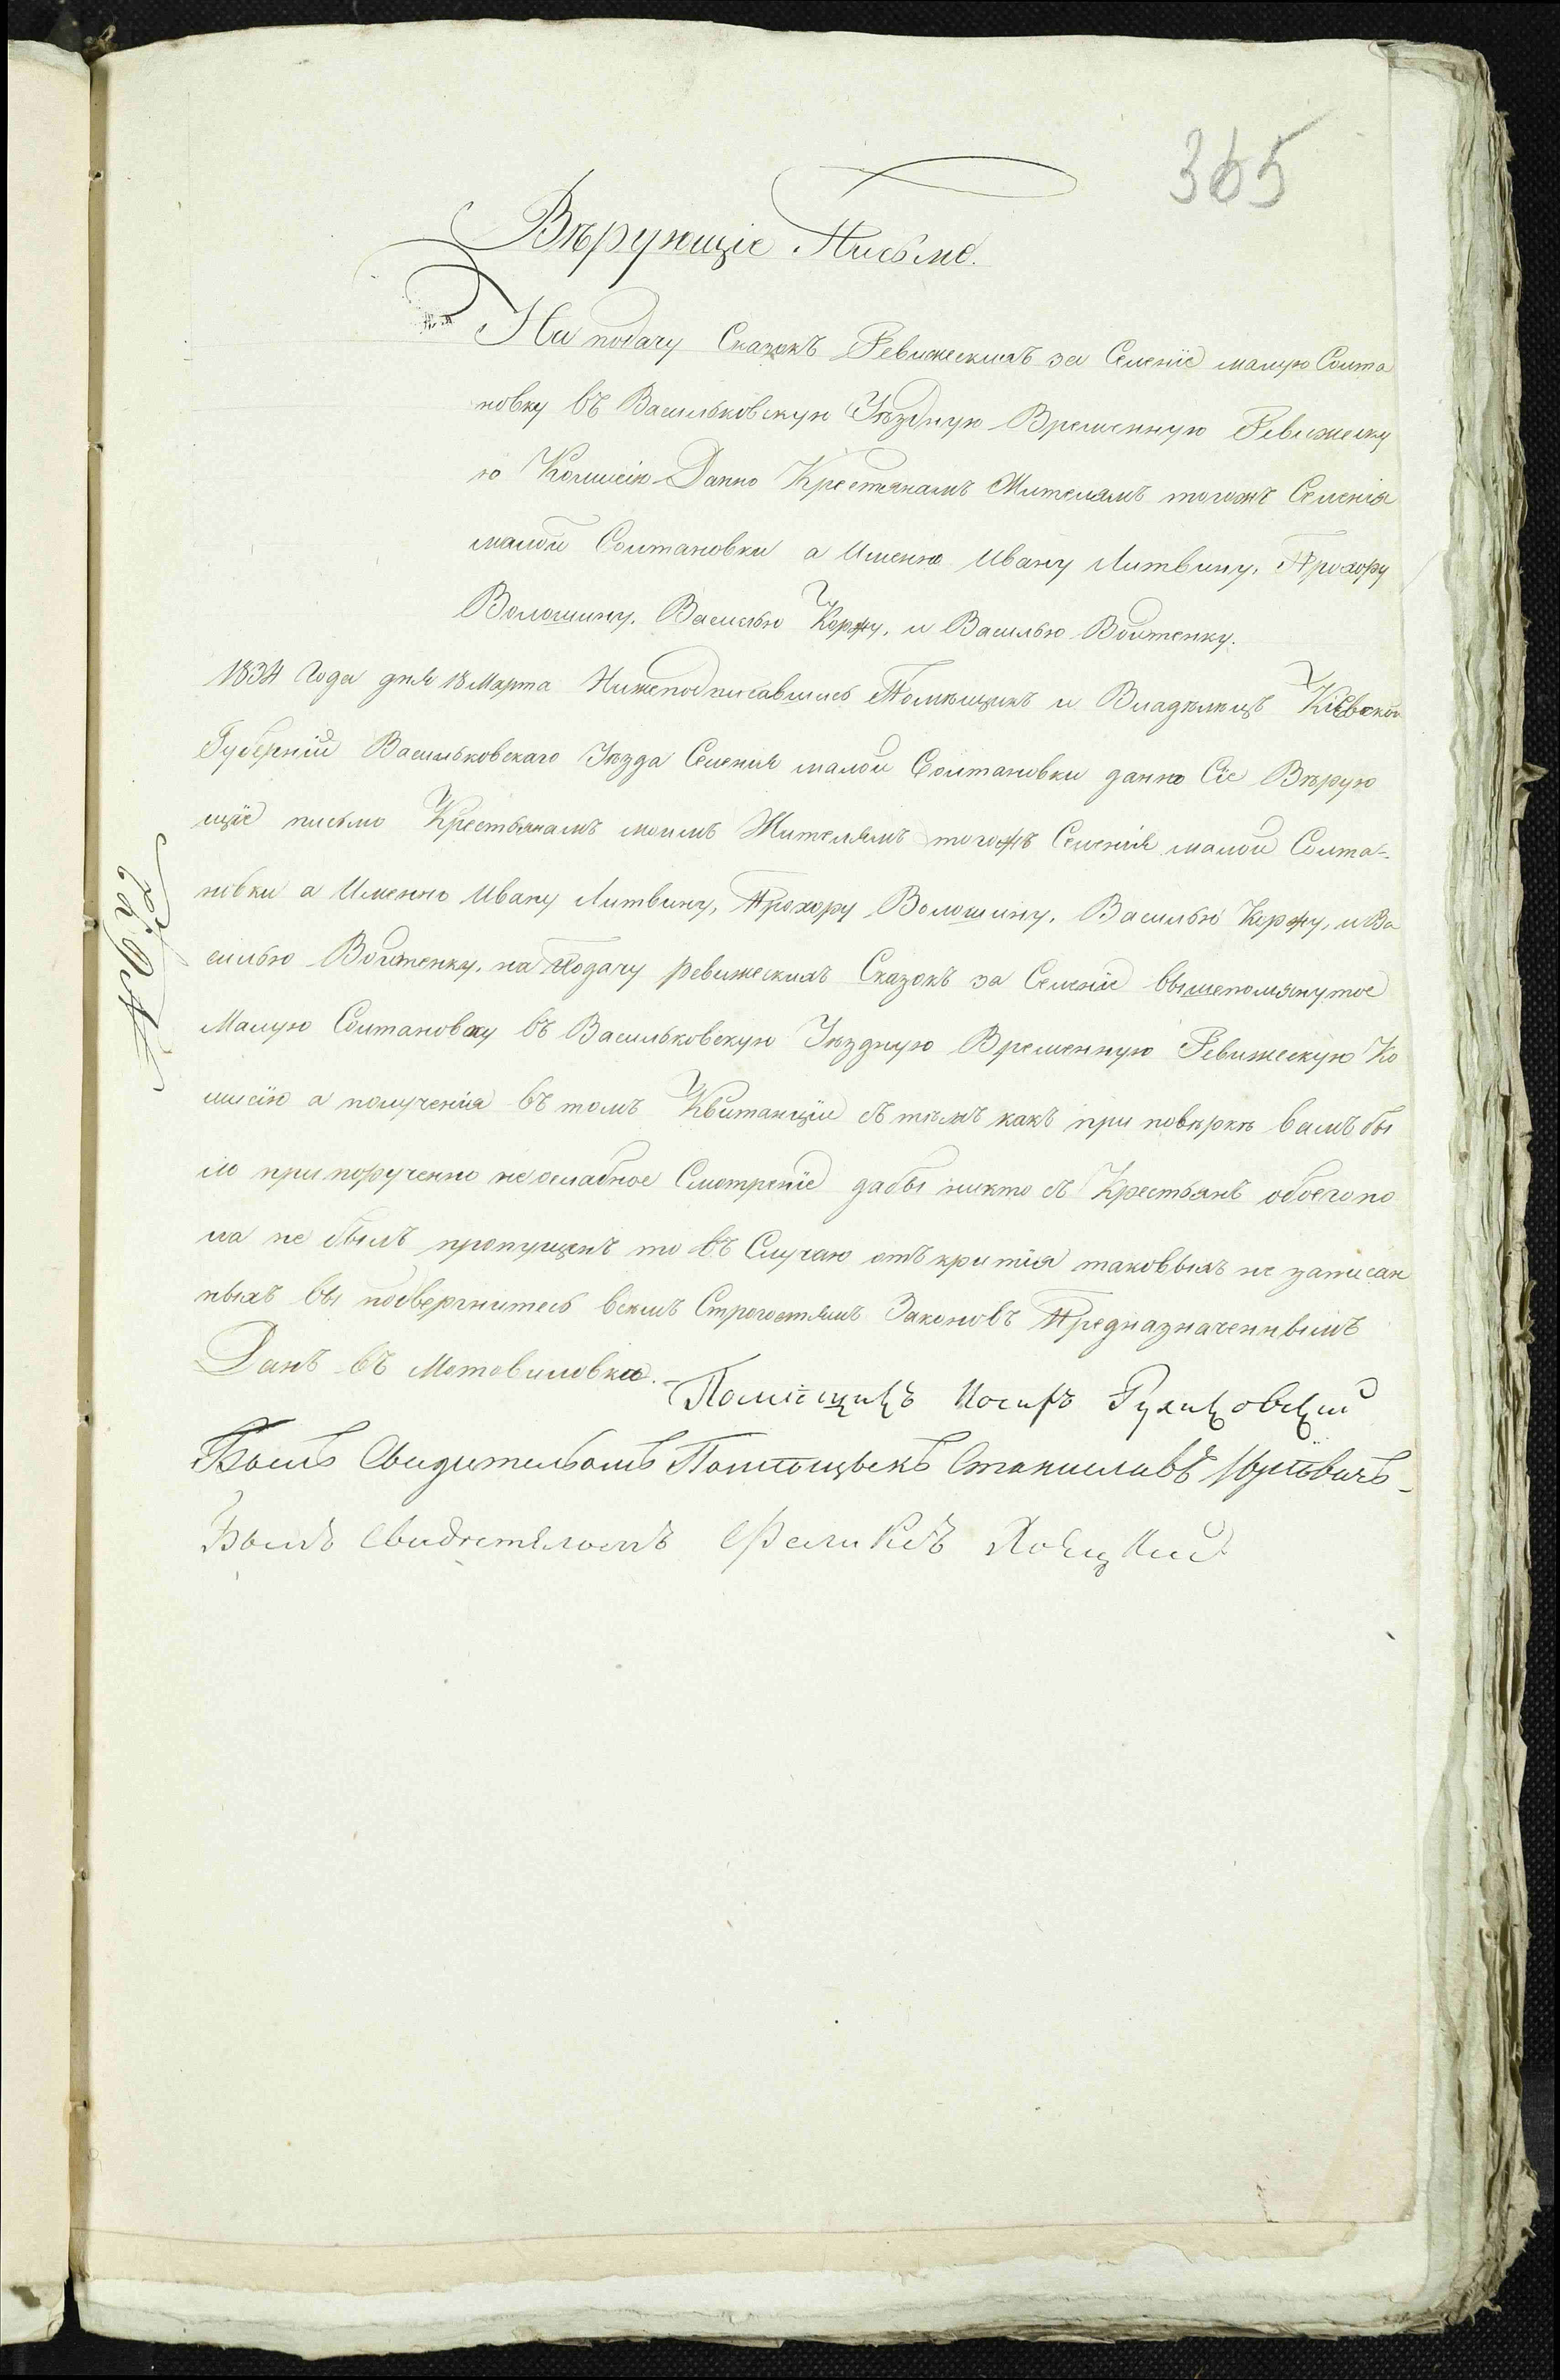 365
Вѣрующіе Письмо.
На подачу Сказокъ Ревижескихъ за Селеніе малую Солта
новку въ Васильковскую Уѣздную Временную Ревижеску
ю Комисію Данно Крестянамъ Жителямъ тогожъ Селенія
малой Солтановки а Именно Ивану Литвину, Прохору
Волошину, Василью Коржу, и Василью Войтенку.
1834 Года дня 18 Марта Нижеподписавшись Помѣщикъ и Владѣлецъ Кіевской
Губерніи Васильковскаго Уѣзда Селенія малой Солтановки данно Сіе Вѣрую
щіе письмо Крестьянамъ моимъ Жителямъ тогожъ Селенія малой Солта-
новки а Именно Ивану Литвину, Прохору Волошину, Василью Коржу, и Ва
силью Войтенку, на Подачу ревижескихъ Сказокъ за Селеніе вышепомянутое
Малую Солтановку въ Васильковскую Уѣздную Временную Ревижескую Ко
мисію а полученія въ томъ Квитанціи съ тѣмъ какъ при повѣркѣ вамъ бы
ло припорученно неослабное Смотреніе дабы никто съ Крестьянъ обоего по
ла не былъ пропущенъ то въ Случаю отъкритія таковыхъ не записан
ныхъ вы подвергнитесь всемъ Строгостямъ Законовъ Предназначеннымъ
Данъ въ Мотовиловка.
Помѣщикъ Иосифъ Руликовскій
Былъ Свидителѣомъ Помѣщыкъ Станиславъ
Былъ Свидетѣлюмъ Феликсъ